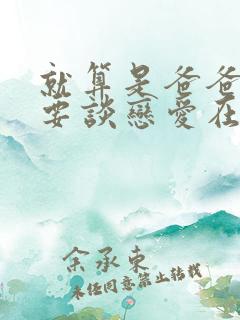 就算是爸爸
要談戀愛在
余承東
未經同意禁止轉載